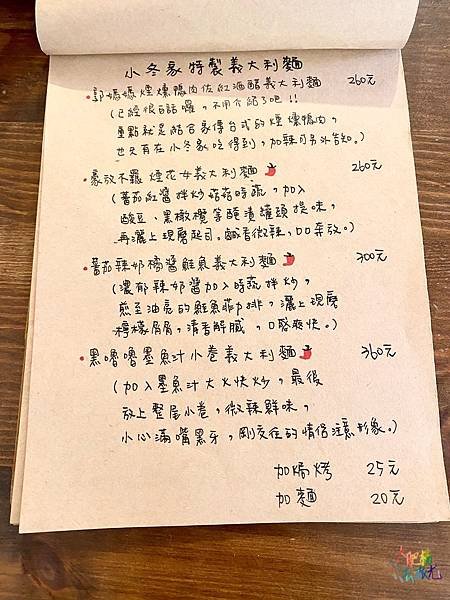 小冬家特製義大利麵
•郭媽媽煙燻鴨肉佐紅酒醋義大利麵 260元
(已經很白話囉,不用介紹了吧!!
重點就是結合家傳台式的煙燻鴨肉,
也只有在小冬家吃得到,加辣可另外告知。)
•豪放不羈煙花女義大利麵 260元
(蕃茄紅醬拌炒菇菇時蔬,加入
酸豆、黑橄欖等醃漬罐頭提味,
再灑上現磨起司。鹹香微辣,口口奔放。)
•蕃茄辣奶橘醬鮭魚義大利麵 300元
(濃郁辣奶醬加入時蔬拌炒,
煎至油亮的鮭魚菲力排,灑上現磨
檸檬屑屑,清香解膩,口感爽快。)
•黑嚕嚕墨魚汁小卷義大利麵 360元
(加入墨魚汁大火快炒,最後
放上整尾小卷,微辣鮮味,
小心滿嘴黑牙,剛交往的情侶注意形象。)
加焗烤 25元
加麵 20元